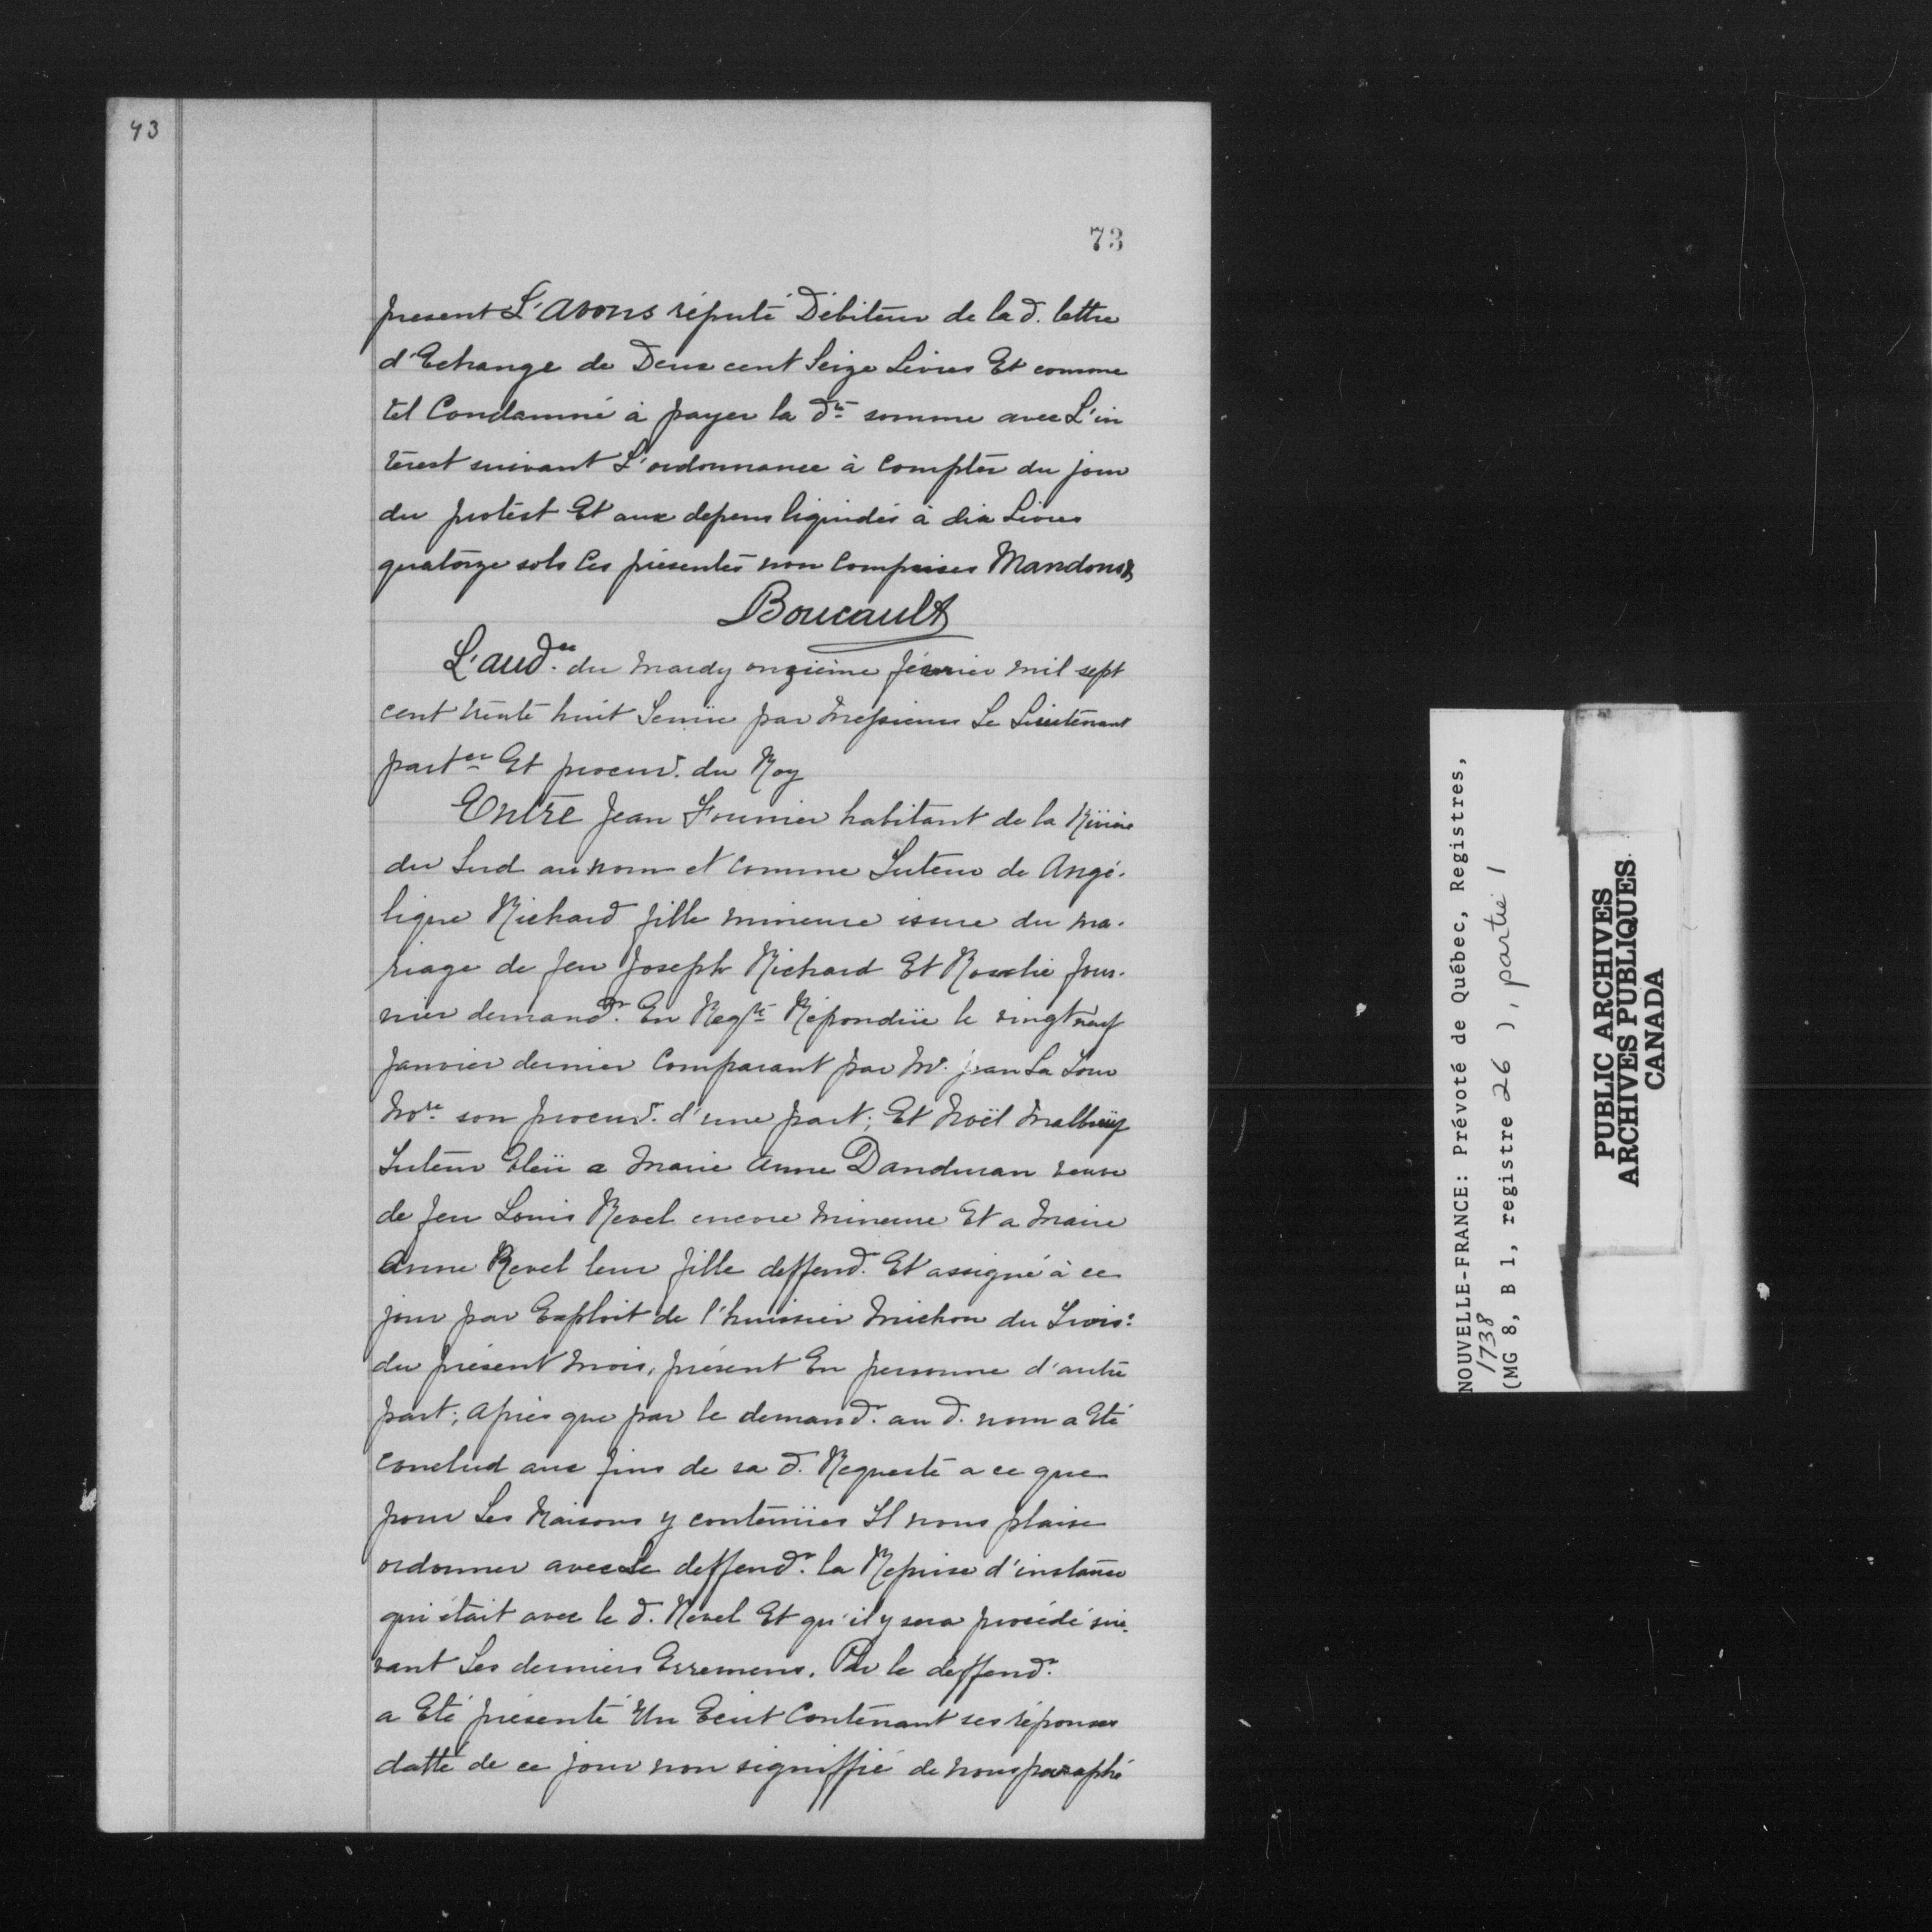 43
73
present L'avons réputé Débiteur de la d. lettre
d'Echange de Deux cent Seize Livres Et comme
tel Condamné à payer la dte somme avec L'in
térest suivant L'ordonnance à compter du jour
du protest Et aux depens liquidés à dix Livres
quatorze sols Ces présentes non Comprises Mandons &
Boucault
L'audce du mardy onzième février mil sept
cent trente huit Tenüe par Messieurs Le Lieutenant
parter Et procur. du Roy
Entre Jean Fournier habitant de la Rivière
du Sud au nom et comme Tuteur de Angé-
lique Richard fille mineure issue du ma-
riage de feu Joseph Richard Et Rosalie four-
nier demandr. En Reqte Répondüe le vingt neuf
Janvier dernier Comparant par Me. Jean La Tour
Nore son procur. d'une part; Et Noël
Tuteur Eleü a Marie Anne Danduran veuve
de feu Louis Revel encore mineure Et a Marie
Anne Revel leur fille deffend. Et assigné à ce
jour par Exploit de l'huissier Michon du Trois:
du présent mois, présent En personne d'autre
part; Après que par le demandr. au d. nom a Eté
conclud aux fins de sa d. Requeste a ce que
pour Les Raisons y contenües Il nous plaise
ordonner avec le deffendr. la Reprise d'instance
qui était avec le d. Revel Et qu'il y sera procédé sui-
vant Les derniers Erremens. Par le deffendr.
a Eté présenté Un Ecrit Contenant ses réponses
datté de ce jour non signiffié de nous paraphé
NOUVELLE-FRANCE: Prévoté de Québec, Registres,
1738
(MG 8, B 1, registre 26 ), partie 1
PUBLIC ARCHIVES
ARCHIVES PUBLIQUES
CANADA